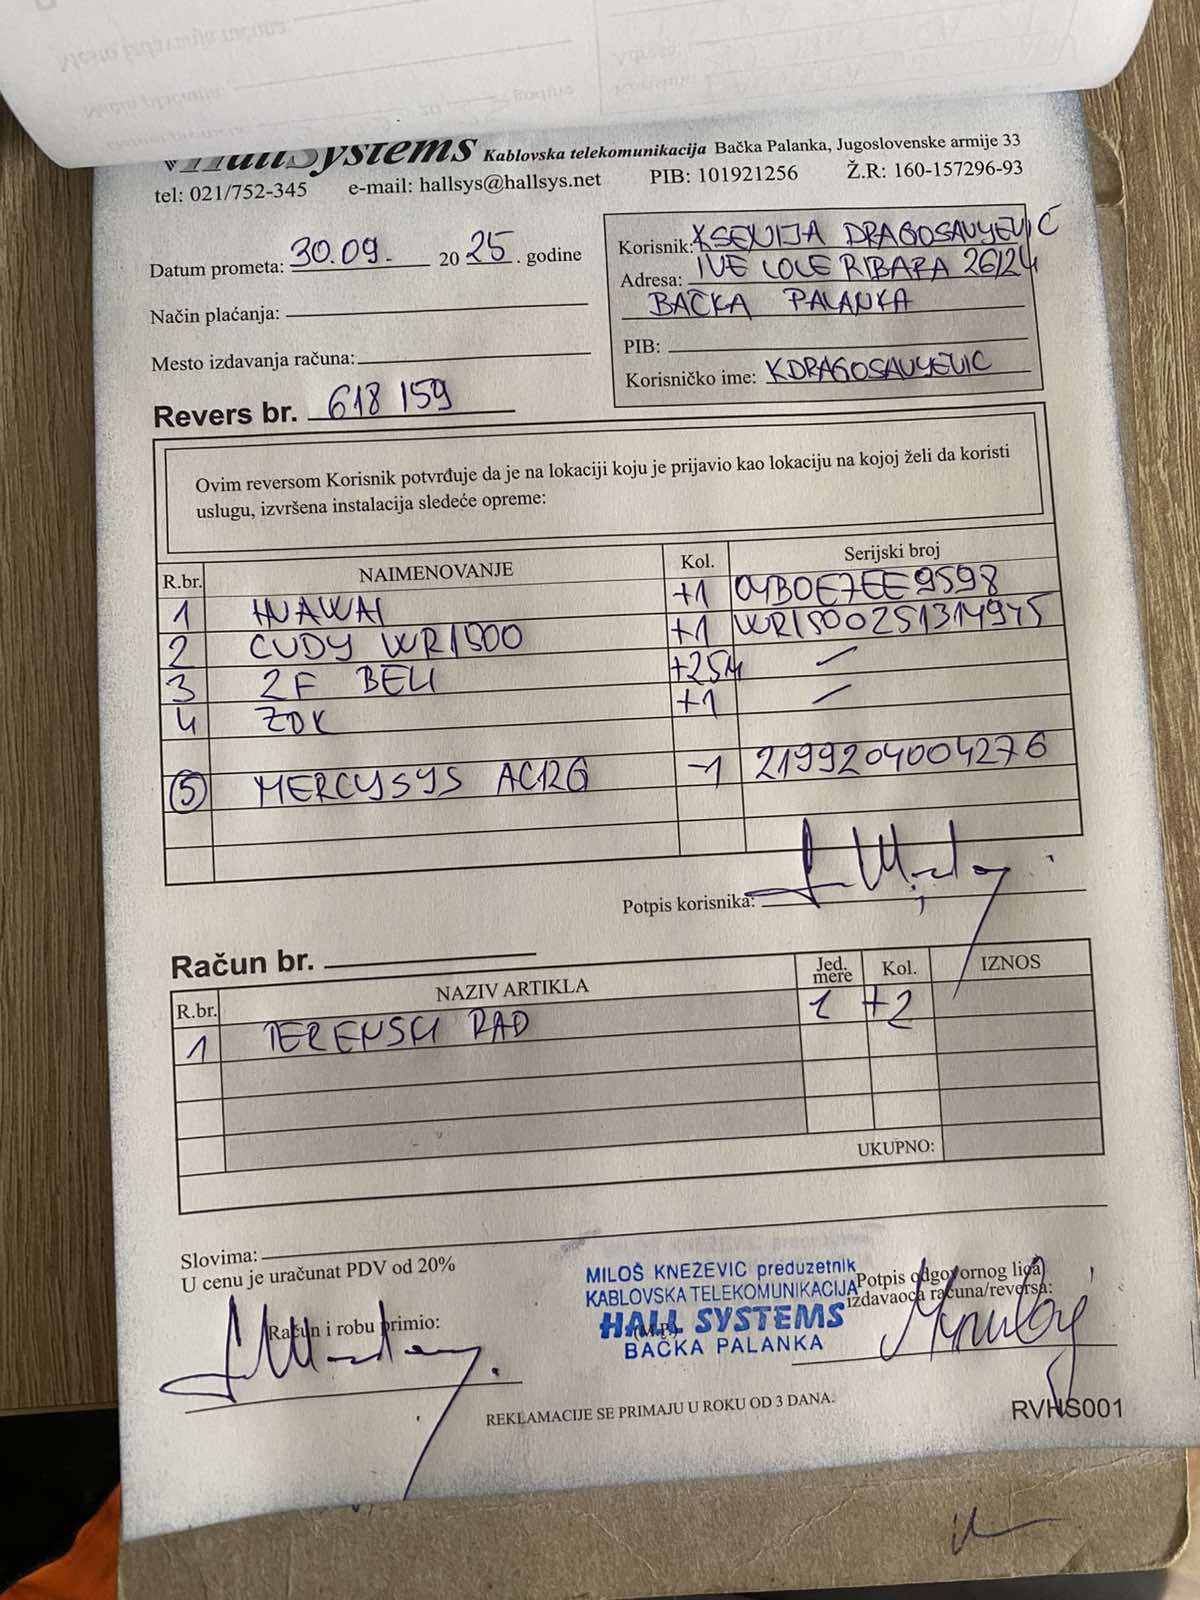 HallSystems Kablovska telekomunikacija Bačka Palanka, Jugoslovenske armije 33
tel: 021/752-345 e-mail: hallsys@hallsys.net PIB: 101921256 Ž.R: 160-157296-93
Datum prometa: 30.09. 20 25. godine
Način plaćanja:
Mesto izdavanja računa:
Korisnik: KSENIJA DRAGOSAVLJEVIĆ
Adresa: IVE LOLE RIBARA 26/24
BAČKA PALANKA
PIB:
Korisničko ime: KDRAGOSAVLJEVIC
Revers br. 618 159
Ovim reversom Korisnik potvrđuje da je na lokaciji koju je prijavio kao lokaciju na kojoj želi da koristi
uslugu, izvršena instalacija sledeće opreme:
R.br. NAIMENOVANJE Kol. Serijski broj
1 HUAWAI +1 04B0E7EE9598
2 CUDY WR1500 +1 WR1500251314945
3 2F BELI +25M —
4 ZOK +1 —
5 MERCYSYS AC12G -1 2199204004276
Potpis korisnika:
Račun br.
R.br. NAZIV ARTIKLA Jed. mere Kol. IZNOS
1 TERENSKI RAD 1 +2
UKUPNO:
Slovima:
U cenu je uračunat PDV od 20%
Račun i robu primio:
MILOŠ KNEŽEVIC preduzetnik
KABLOVSKA TELEKOMUNIKACIJA
HALL SYSTEMS
(M.P.)
BAČKA PALANKA
Potpis odgovornog lica
izdavaoca računa/reversa:
REKLAMACIJE SE PRIMAJU U ROKU OD 3 DANA.
RVHS001